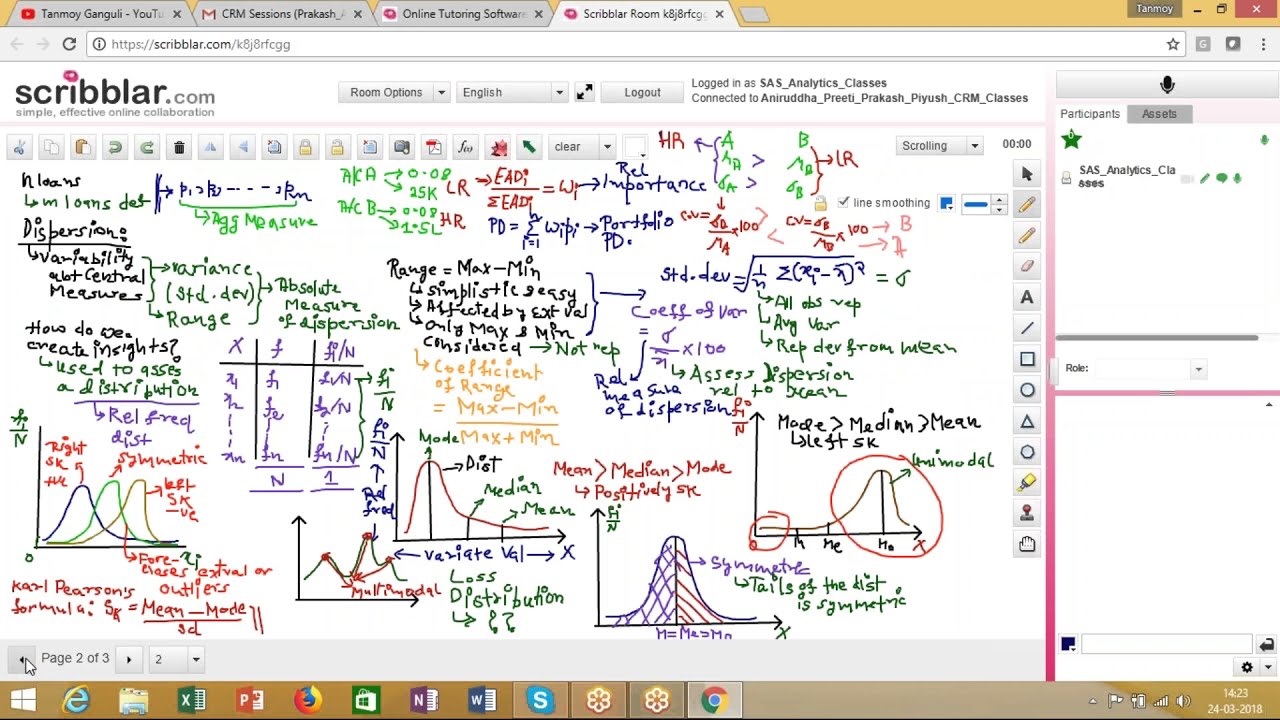 Tanmoy Ganguli - YouTu
CRM Sessions (Prakash_A
Online Tutoring Software
Scribblar Room k8j8rfcgg
Tanmoy
https://scribblar.com/k8j8rfcgg
scribblar.com
simple, effective online collaboration
Room Options
English
Logout
Logged in as SAS_Analytics_Classes
Connected to Aniruddha_Preeti_Prakash_Piyush_CRM_Classes
clear
Scrolling
00:00
line smoothing
Participants
Assets
SAS_Analytics_Cla
sses
Role:
n loans
↳ m loans def
p1, p2 - - - - , pm
↳ Agg Measure
A/C A → 0.08
→ 25K
LR
A/C B → 0.08
→ 1.5L
HR
EADi
ΣEADi
= wi → Rel
Importance
PD = Σ wipi → Portfolio
i=1
PD.
HR
A
μA >
σA >
B
μB
σB
LR
CV = σA/μA × 100
CV = σB/μB × 100
B
A
Dispersion:
↳ variability
abt Central
Measures
→ variance
(std. dev)
→ Range
→ Absolute
Measure
of dispersion
Range = Max - Min
↳ simplistic & easy
↳ Affected by Ext val
↳ Only Max & Min
considered → Not rep
↳ Coefficient
of Range
= Max - Min
Max + Min
std. dev = √ 1/n Σ(xi - x̄)² = σ
↳ All obs rep
↳ Avg Var
↳ Rep dev from mean
Coeff of Var
= σ/x̄ × 100
↳ Assess Dispersion
rel to mean
Rel
measure
of dispersion
How do we
create insights?
↳ used to asses
a distribution
↳ Rel freq
dist
X f fi/N
x1 f1 f1/N
x2 f2 f2/N
xn fn fn/N
N 1
fi/N
fi/N
Rel
freq
fi/N
Right
sk
+ve
symmetric
left
sk
-ve
0
xi
Fore-
closes extval or
outliers
Karl Pearson's
formula: Sk = Mean - Mode
sd
Multimodal
Mode
Dist
Median
Mean
variate val → X
Loss
Distribution
↳ ??
Mean > Median > Mode
↳ Positively sk
fi/N
Symmetric
↳ Tails of the dist
is symmetric
M = Me = Mo
X
fi/N
Mode > Median > Mean
↳ left sk
Unimodal
0
M
Me
Mo
X
Page 2 of 3
2
14:23
24-03-2018